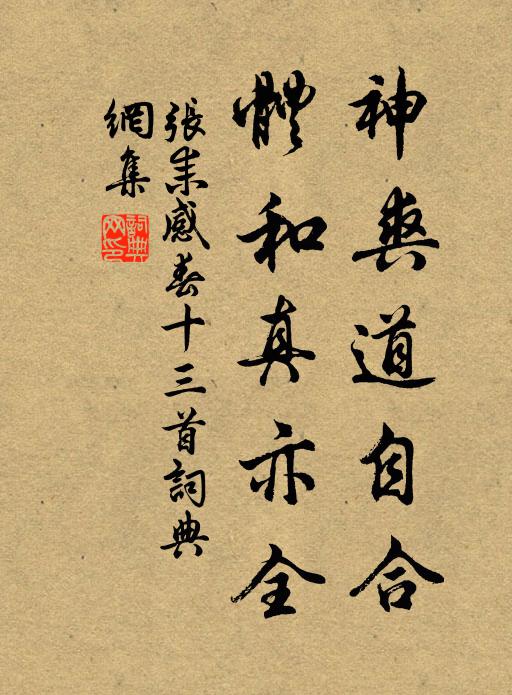 神爽道自合
體和真亦全
張耒感春十三首詞典
網集
詞典網印